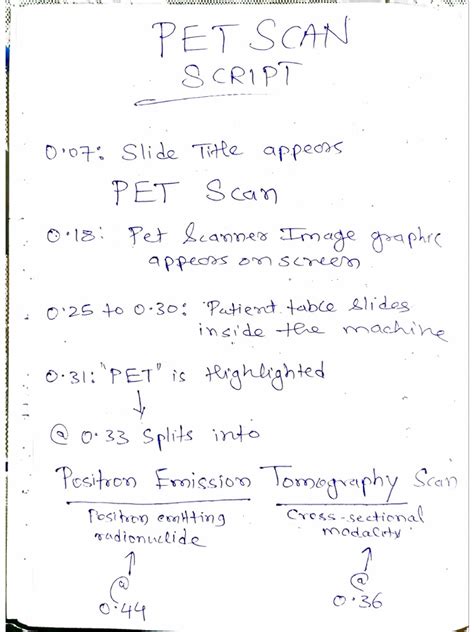 PET SCAN
SCRIPT
0.07: Slide Title appears
PET Scan
0.18: Pet Scanner Image graphic
appears on screen
0.25 to 0.30: Patient table slides
inside the machine
0.31: "PET" is Highlighted
↓
@ 0.33 Splits into
Positron Emission Tomography Scan
Positron emitting radionuclide
Cross-sectional modality
↑ ↑
@ @
0.44 0.36